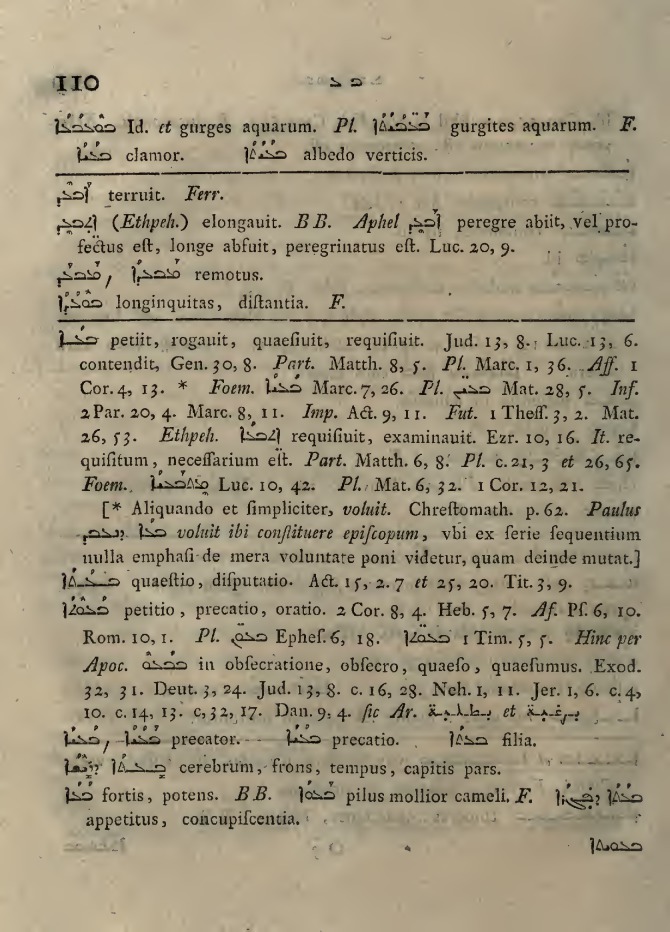 110 ܒ ܥ
ܒܘܥܒܥܐ Id. et gurges aquarum. Pl. gurgites aquarum. F.
ܒܥܝܐ clamor. ܒܥܝܬܐ albedo verticis.
ܐܒܥܕ terruit. Ferr.
ܐܬܒܥܕ (Ethpeh.) elongauit. B B. Aphel ܐܒܥܕ peregre abiit, vel pro-
fectus eſt, longe abfuit, peregrinatus eſt. Luc. 20, 9.
ܡܒܥܕ, ܡܒܥܕܐ remotus.
ܒܘܥܕܐ longinquitas, diſtantia. F.
ܒܥܐ petiit, rogauit, quaeſiuit, requiſiuit. Jud. 13, 8. Luc. 13, 6.
contendit, Gen. 30, 8. Part. Matth. 8, 5. Pl. Marc. 1, 36. Aff. 1
Cor. 4, 13. * Foem. ܒܥܝܐ Marc. 7, 26. Pl. ܒܥܝܢ Mat. 28, 5. Inf.
2 Par. 20, 4. Marc. 8, 11. Imp. Act. 9, 11. Fut. 1 Theſſ. 3, 2. Mat.
26, 53. Ethpeh. requiſiuit, examinauit. Ezr. 10, 16. It. re-
quiſitum, neceſſarium eſt. Part. Matth. 6, 8. Pl. c. 21, 3 et 26, 65.
Foem. ܡܬܒܥܝܐ Luc. 10, 42. Pl. Mat. 6, 32. 1 Cor. 12, 21.
[* Aliquando et ſimpliciter, voluit. Chreſtomath. p. 62. Paulus
ܒܥܐ ܕܢܣܝܡ voluit ibi conſtituere epiſcopum, vbi ex ſerie ſequentium
nulla emphaſi de mera voluntate poni videtur, quam deinde mutat.]
ܒܥܬܐ quaeſtio, diſputatio. Act. 15, 2. 7 et 25, 20. Tit. 3, 9.
ܒܥܘܬܐ petitio, precatio, oratio. 2 Cor. 8, 4. Heb. 5, 7. Af. Pſ. 6, 10.
Rom. 10, 1. Pl. Epheſ. 6, 18. ܒܥܘܬܐ 1 Tim. 5, 5. Hinc per
Apoc. ܒܒܥܘ in obſecratione, obſecro, quaeſo, quaeſumus. Exod.
32, 31. Deut. 3, 24. Jud. 13, 8. c. 16, 28. Neh. 1, 11. Jer. 1, 6. c. 4,
10. c. 14, 13. c, 32, 17. Dan. 9, 4. ſic Ar. et
precator. precatio. filia.
cerebrum, frons, tempus, capitis pars.
fortis, potens. B B. pilus mollior cameli. F.
appetitus, concupiſcentia.